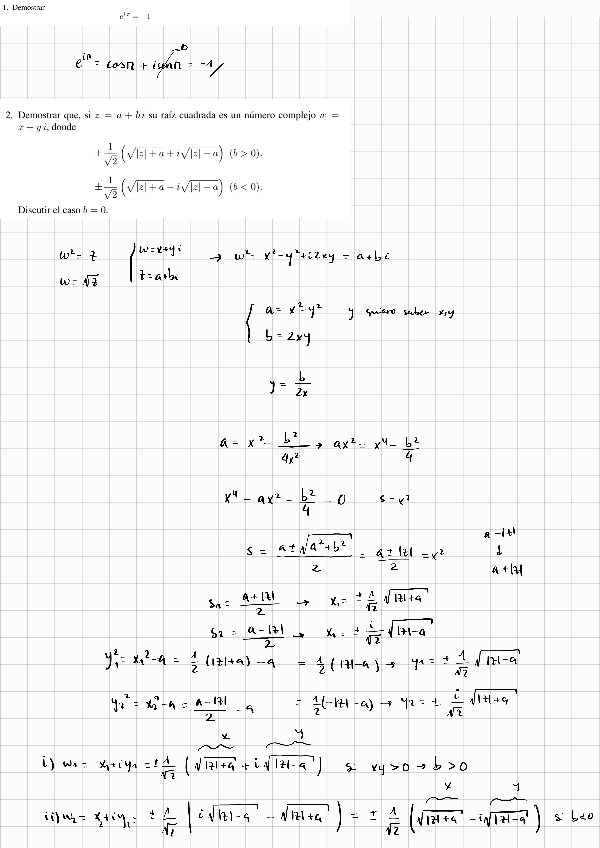 1. Demostrar
e^{iπ} = −1
e^{iπ} = cosπ + i sinπ = -1 /
0
2. Demostrar que, si z = a + b i su raíz cuadrada es un número complejo w =
x + y i, donde
+ 1/√2 (√|z| + a + i√|z| − a) (b > 0).
± 1/√2 (√|z| + a − i√|z| − a) (b < 0).
Discutir el caso b = 0.
w² = z { w = x+yi → w² = x² - y² + i2xy = a+bi
w = √z z = a+bi
{ a = x² - y² y quiero saber x,y
b = 2xy
y = b/2x
a = x² - b²/4x² → ax² = x⁴ - b²/4
x⁴ - ax² - b²/4 = 0 s = x²
s = (a ± √(a²+b²))/2 = (a ± |z|)/2 = x² a - |z|
↓
a + |z|
s₁ = (a+|z|)/2 → x₁ = ± 1/√2 √(|z|+a)
s₂ = (a-|z|)/2 → x₂ = ± i/√2 √(|z|-a)
y₁² = x₁² - a = (1/2)(|z|+a) - a = 1/2 (|z|-a) → y₁ = ± 1/√2 √(|z|-a)
y₂² = x₂² - a = (a-|z|)/2 - a = 1/2 (-|z|-a) → y₂ = ± i/√2 √(|z|+a)
x y
i) w₁ = x₁+iy₁ = ± 1/√2 (√(|z|+a) + i √(|z|-a)) si xy > 0 → b > 0
x y
ii) w₂ = x₂+iy₂ = ± 1/√2 ( i√(|z|-a) - √(|z|+a) ) = ± 1/√2 (√(|z|+a) - i√(|z|-a)) si b<0